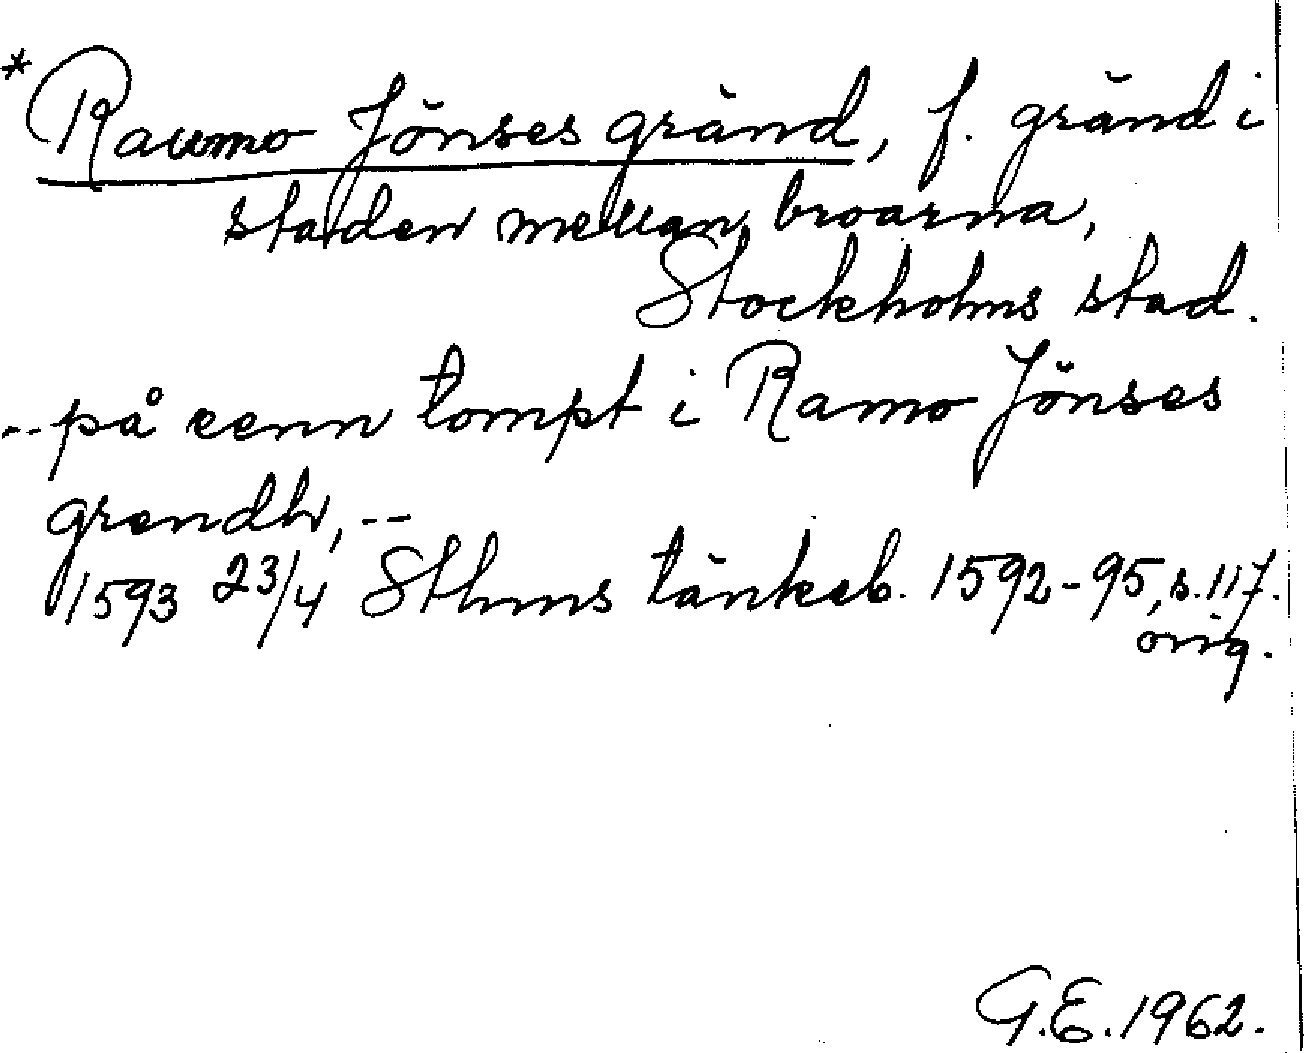 *Raumo Jönses gränd, f. gränd i
staden mellan broarna,
Stockholms stad.
--på eenn tompt i Ramo Jönses
grendh, --
1593 23/4 Sthms tänkeb. 1592-95, s. 117.
orig.
G.E. 1962.